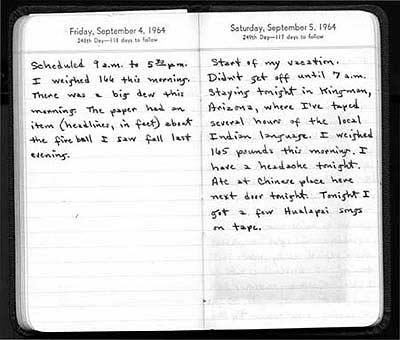 Friday, September 4, 1964
248th Day—118 days to follow
Scheduled 9 a.m. to 5:30 p.m.
I weighed 164 this morning.
There was a big dew this
morning. The paper had an
item (headlines, in fact) about
the fireball I saw fall last
evening.
Saturday, September 5, 1964
249th Day—117 days to follow
Start of my vacation.
Didn't get off until 7 a.m.
Staying tonight in Kingman,
Arizona, where I've taped
several hours of the local
Indian language. I weighed
165 pounds this morning. I
have a headache tonight.
Ate at Chinese place here
next door tonight. Tonight I
got a few Hualapai songs
on tape.